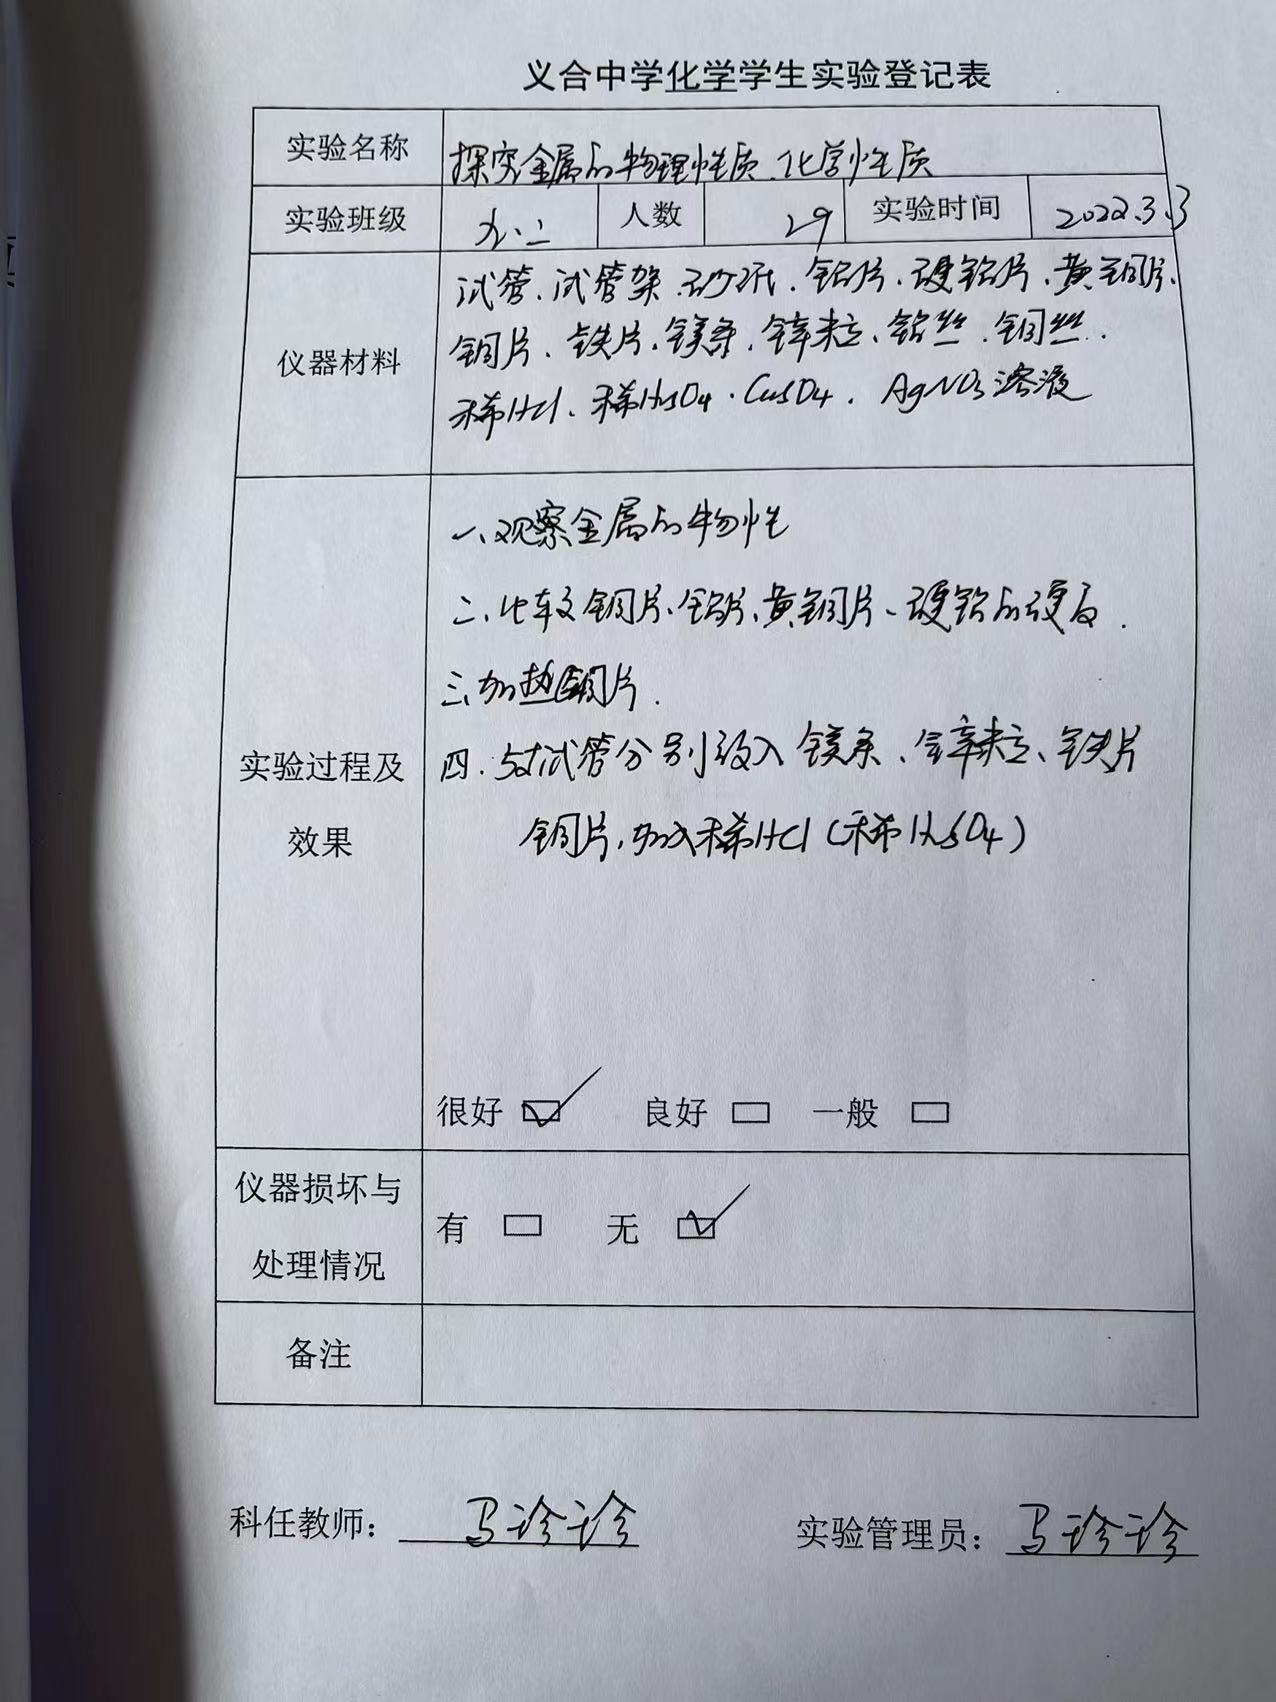 义合中学化学学生实验登记表
实验名称 探究金属的物理性质、化学性质
实验班级 九.二 人数 29 实验时间 2022.3.3
仪器材料
试管、试管架、砂纸、铝片、硬铝片、黄铜片、
铜片、铁片、镁条、锌粒、铝丝、铜丝.
稀HCl、稀H₂SO₄.CuSO₄.AgNO₃溶液
实验过程及
效果
一、观察金属的物性
二、比较铜片、铝片、黄铜片、硬铝的硬度.
三、加热铜片.
四.5支试管分别放入镁条、锌粒、铁片
铜片,加入稀HCl(稀H₂SO₄)
很好 ☑ 良好 □ 一般 □
仪器损坏与
处理情况
有 □ 无 ☑
备注
科任教师: 马诊诊 实验管理员: 马诊诊